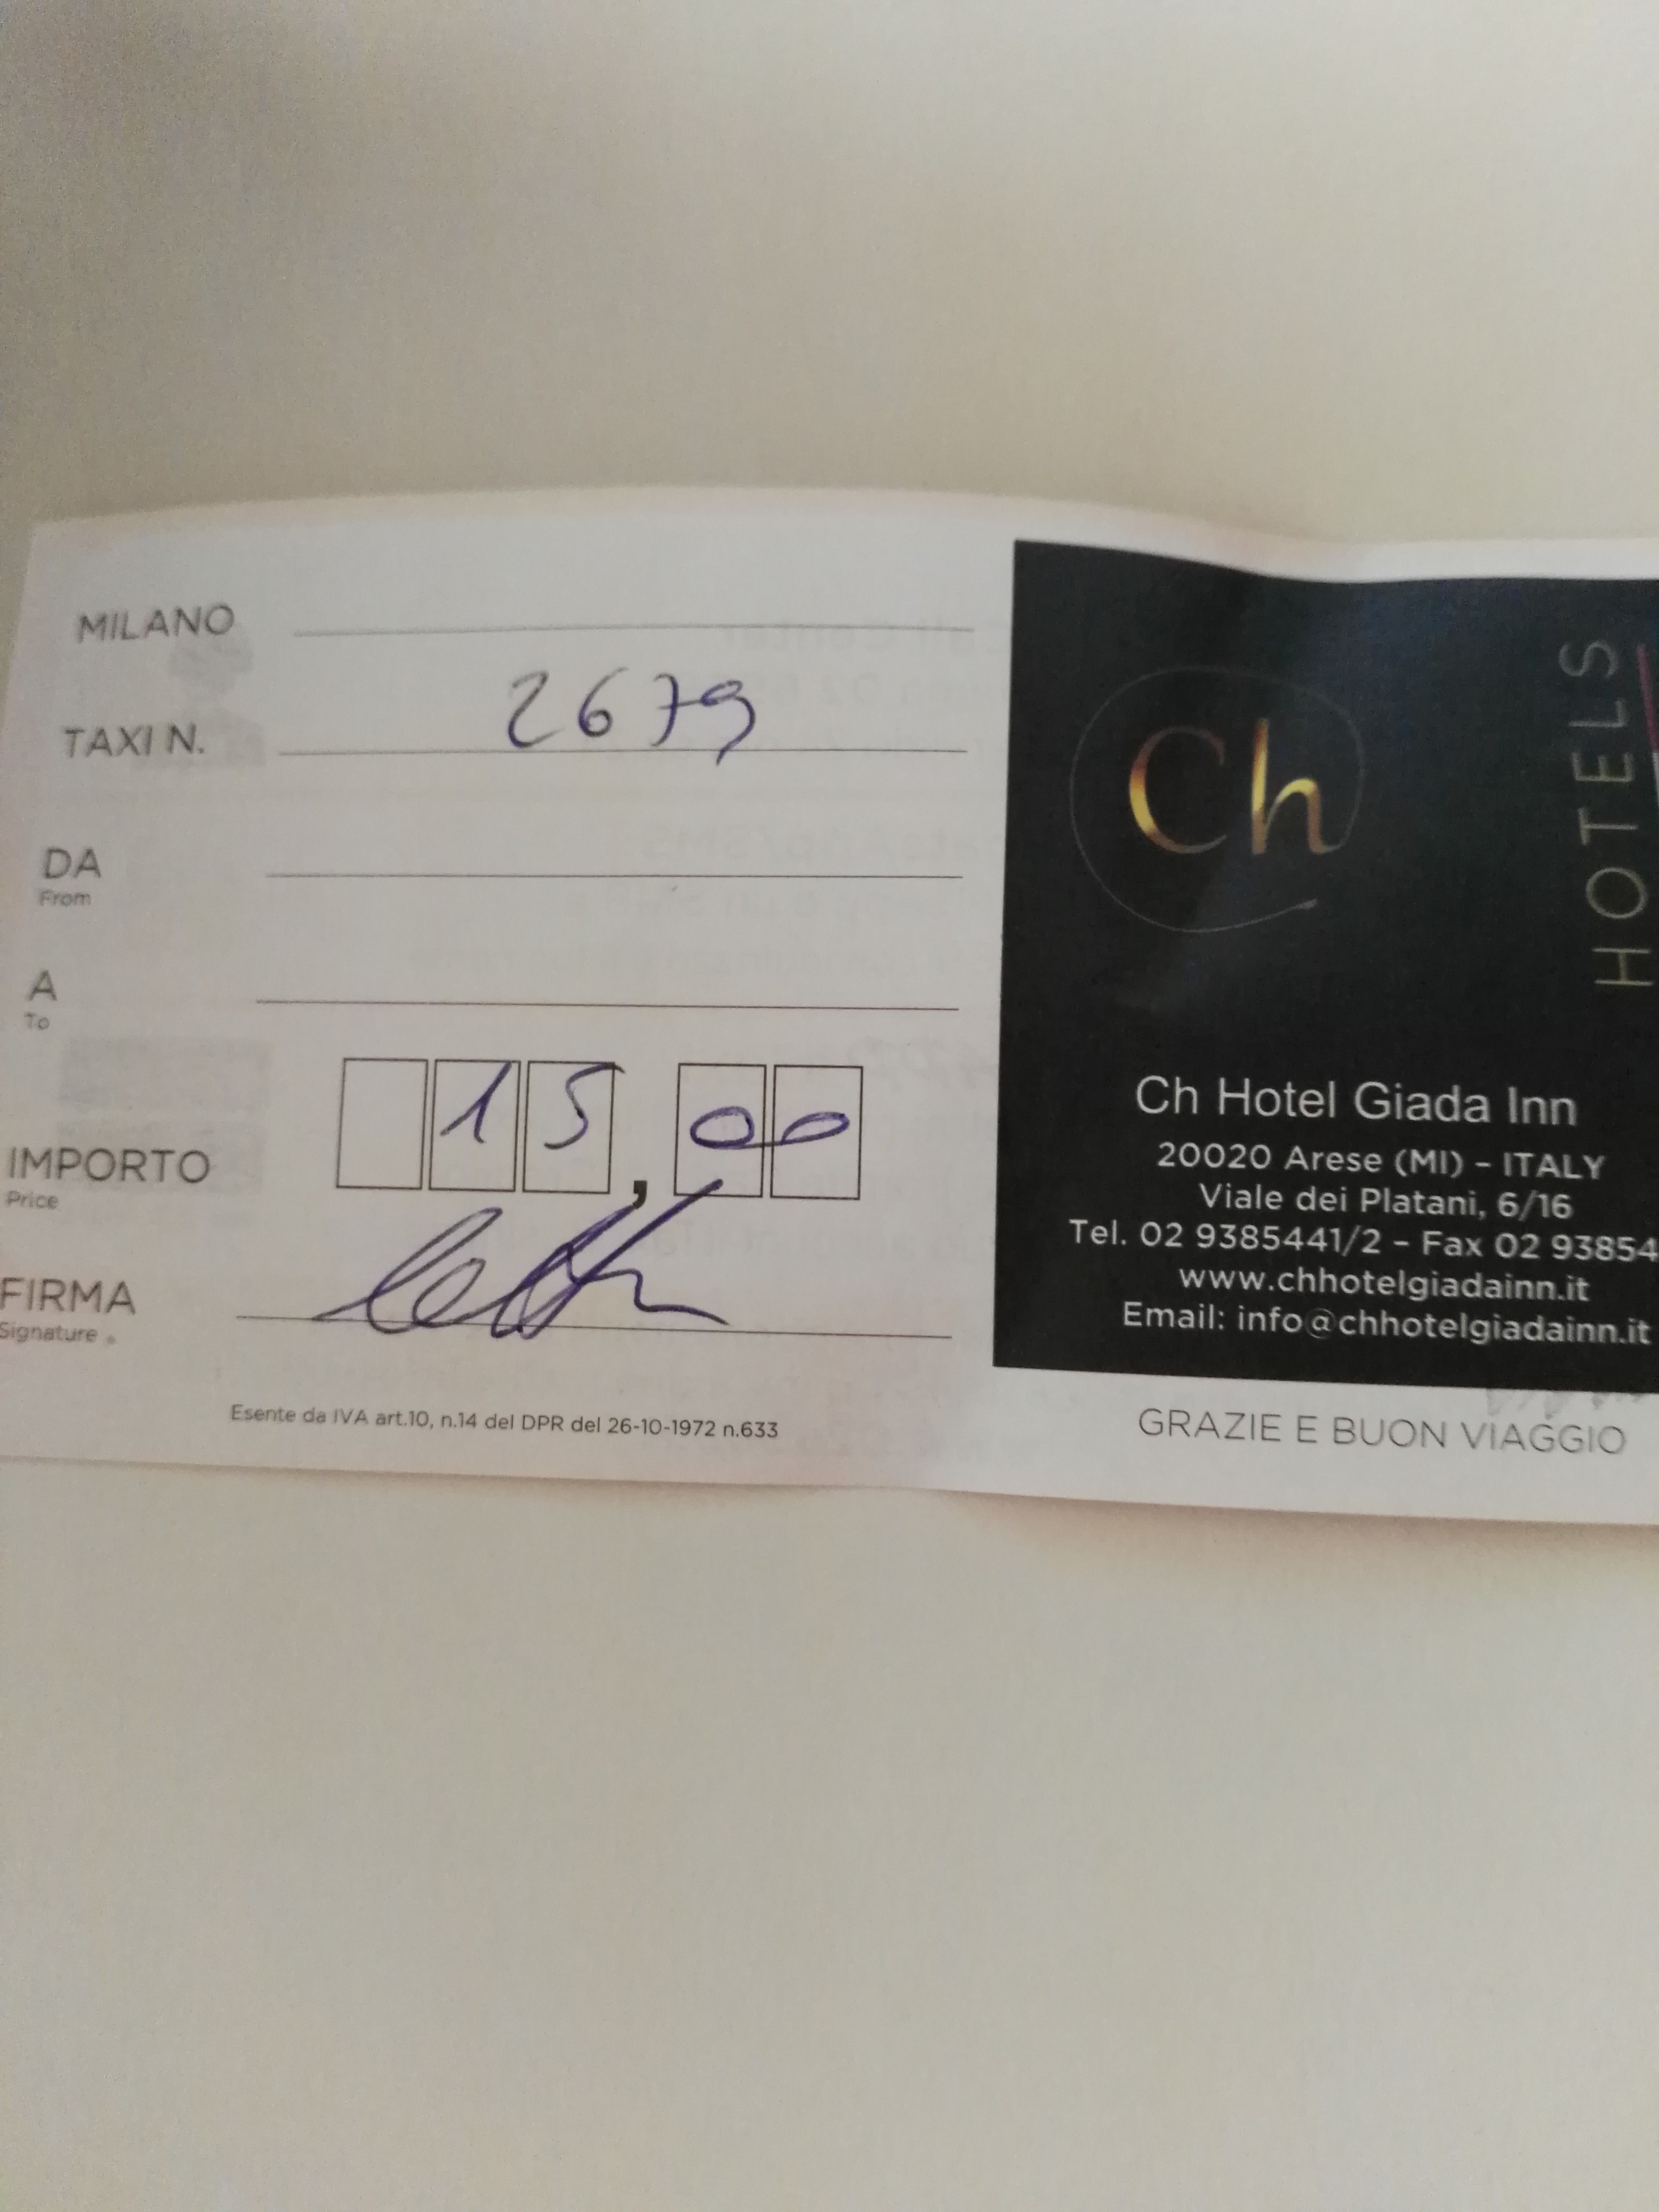 MILANO
TAXI N. 2679
DA
From
A
To
IMPORTO 15,00
Price
FIRMA
Signature
Esente da IVA art.10, n.14 del DPR del 26-10-1972 n.633
Ch
HOTELS
Ch Hotel Giada Inn
20020 Arese (MI) - ITALY
Viale dei Platani, 6/16
Tel. 02 9385441/2 - Fax 02 93854
www.chhotelgiadainn.it
Email: info@chhotelgiadainn.it
GRAZIE E BUON VIAGGIO